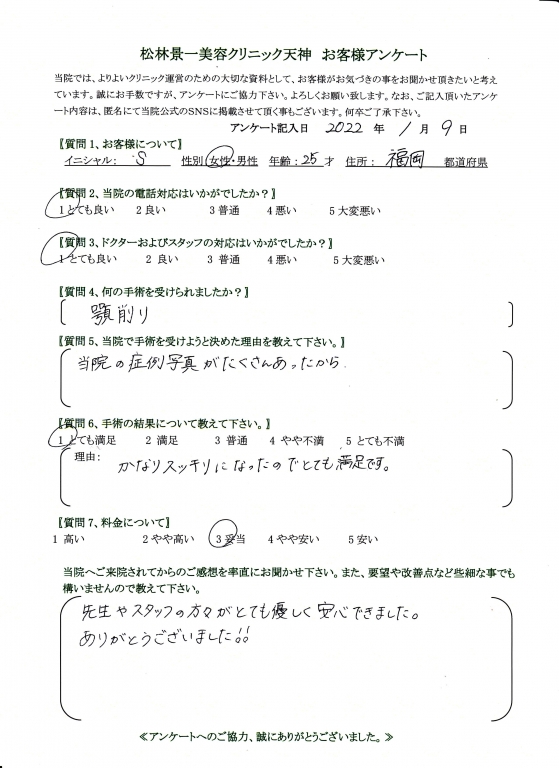 松林景一美容クリニック天神　お客様アンケート
当院では、よりよいクリニック運営のための大切な資料として、お客様がお気づきの事をお聞かせ頂きたいと考え
ています。誠にお手数ですが、アンケートにご協力下さい。よろしくお願い致します。なお、ご記入頂いたアンケ
ート内容は、匿名にて当院公式のSNSに掲載させて頂く事もございます。何卒ご了承下さい。
アンケート記入日　2022　年　1　月　9　日
〖質問1、お客様について〗
イニシャル：　S　性別：女性・男性　年齢：25才　住所：　福岡　都道府県
〖質問2、当院の電話対応はいかがでしたか？〗
1とても良い　2良い　3普通　4悪い　5大変悪い
〖質問3、ドクターおよびスタッフの対応はいかがでしたか？〗
1とても良い　2 良い　3 普通　4悪い　5大変悪い
〖質問4、何の手術を受けられましたか？〗
顎削り
〖質問5、当院で手術を受けようと決めた理由を教えて下さい。〗
当院の症例写真がたくさんあったから
〖質問6、手術の結果について教えて下さい。〗
1 とても満足　2 満足　3 普通　4 やや不満　5 とても不満
理由：
かなりスッキリになったのでとても満足です。
〖質問7、料金について〗
1 高い　2やや高い　3 妥当　4やや安い　5安い
当院へご来院されてからのご感想を率直にお聞かせ下さい。また、要望や改善点など些細な事でも
構いませんので教えて下さい。
先生やスタッフの方々がとても優しく安心できました。
ありがとうございました!!
≪アンケートへのご協力、誠にありがとうございました。≫